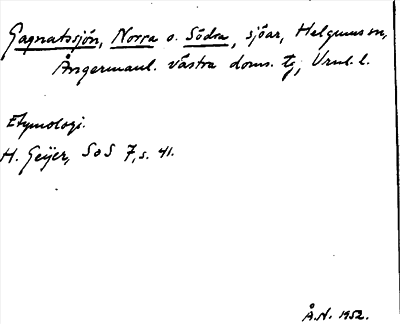 Gagnatssjön, Norra o. Södra, sjöar, Helgums sn,
Ångermanl. västra doms. tg, Vnrl. l.
Etymologi.
H. Geijer, SoS 7, s. 41.
Å.N. 1952.